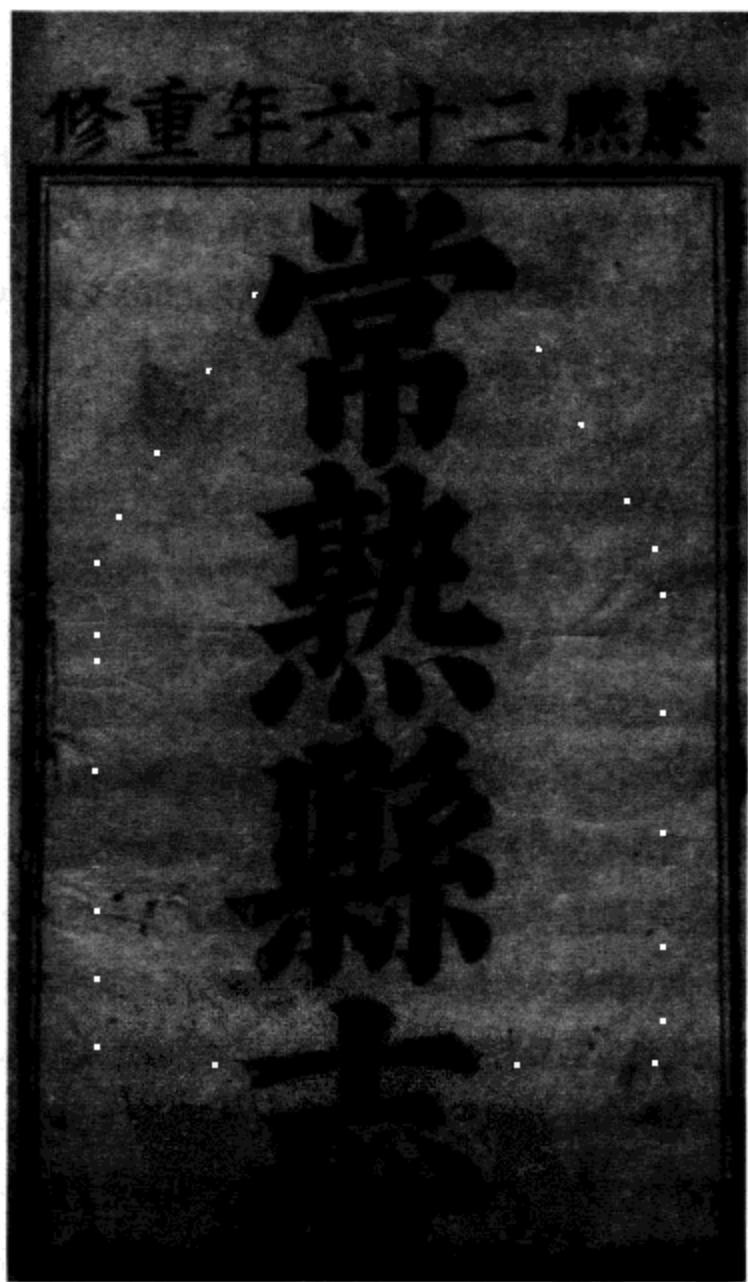 康熙二十六年重修
常熟縣志